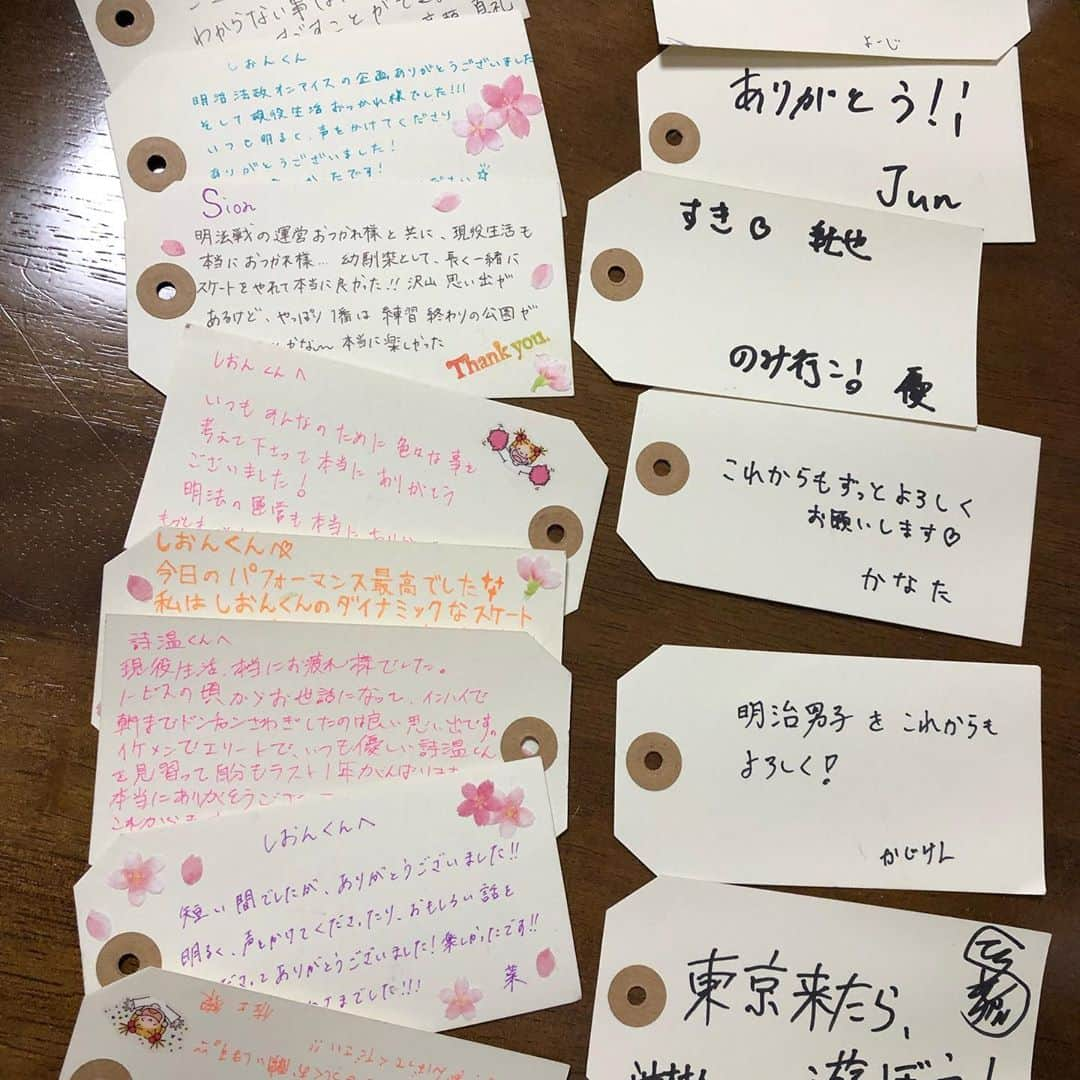 わからない事は
すことができ
しおんくん
明治法政オンアイスの企画ありがとうございました
そして現役生活おつかれ様でした!!!
いつも明るく、声をかけてくださり
ありがとうございました!
かたです!
ださい
Sion
明法戦の運営おつかれ様と共に、現役生活も
本当におつかれ様... 幼馴染として、長く一緒に
スケートをやれて本当に良かった!! 沢山 思い出が
あるけど、やっぱり1番は 練習終わりの公園が
かな〜 本当に楽しかった
Thank you.
しおんくんへ
いつも みんなのために色々な事を
考えて下さって本当に ありがとう
ございました!
明法の運営も本当に
しおんくんへ♡
今日のパフォーマンス最高でした
私はしおんくんのダイナミックなスケート
詩温くんへ
現役生活、本当にお疲れ様でした。
ノービスの頃からお世話になって、インハイで
朝までドンチャンさわぎしたのは良い思い出です。
イケメンでエリートで、いつも優しい詩温くん
を見習って自分もラスト1年がんばり
本当にありがとうござ
しおんくんへ
短い間でしたが、ありがとうございました!!
明るく、声をかけてくださったり、おもしろい話を
ださってありがとうございました!楽しかったです!!
さまでした!!!
菜
よーじ
ありがとう!!
Jun
すき♡
のみ行こ! 優
これからもずっとよろしく
お願いします♡
かなた
明治男子をこれからも
よろしく!
かじけん
東京来たら、
遊ぼう!